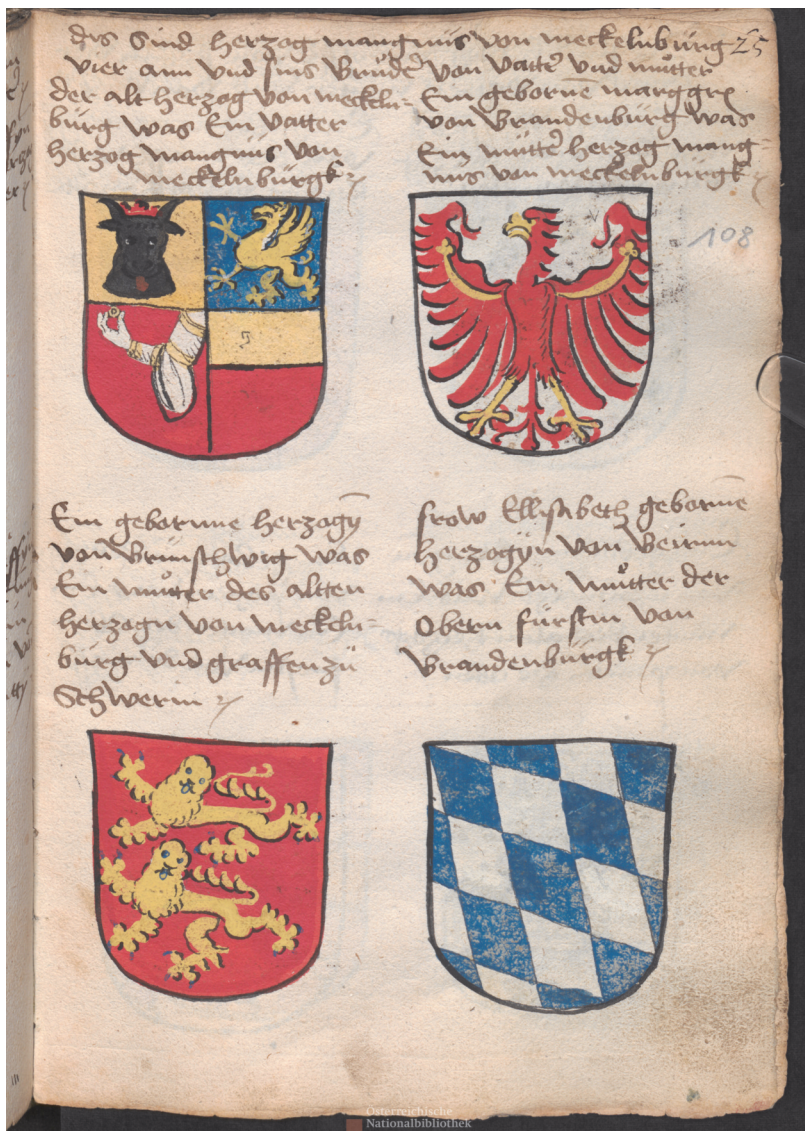 dis sind herzog mangnus von meckelnburg 25
vier ann vnd sins bruder von vatter vnd mutter
der alt herzog von meckeln=
burg was Ein vatter
herzog mangnus von
meckelnburgk
Ein geborne marggre
von Brandenburg was
Ein mutter herzog mang=
nus von meckelnburgk
108
Ein gebornne herzogȳ
von Brunschwig was
Ein muter des altten
herzogn von meckeln=
burg vnd graffen zu
Schwerin
frow Ellisabeth geborne
herzogyn von Beirnn
was Ein mutter der
Obern furstin von
Brandenburgk
Österreichische
Nationalbibliothek